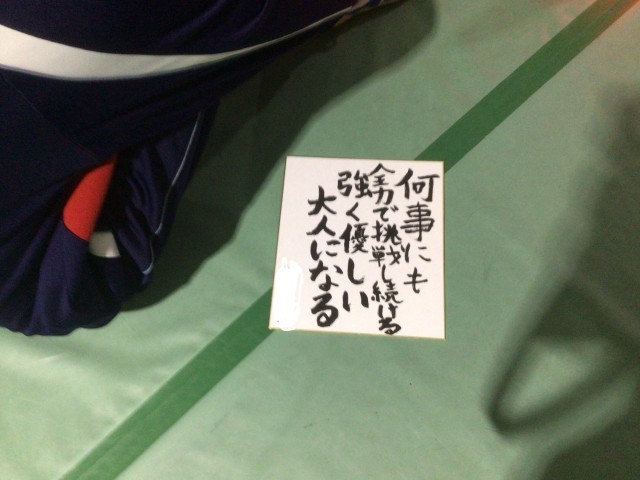 何事にも
全力で挑戦し続ける
強く優しい
大人になる